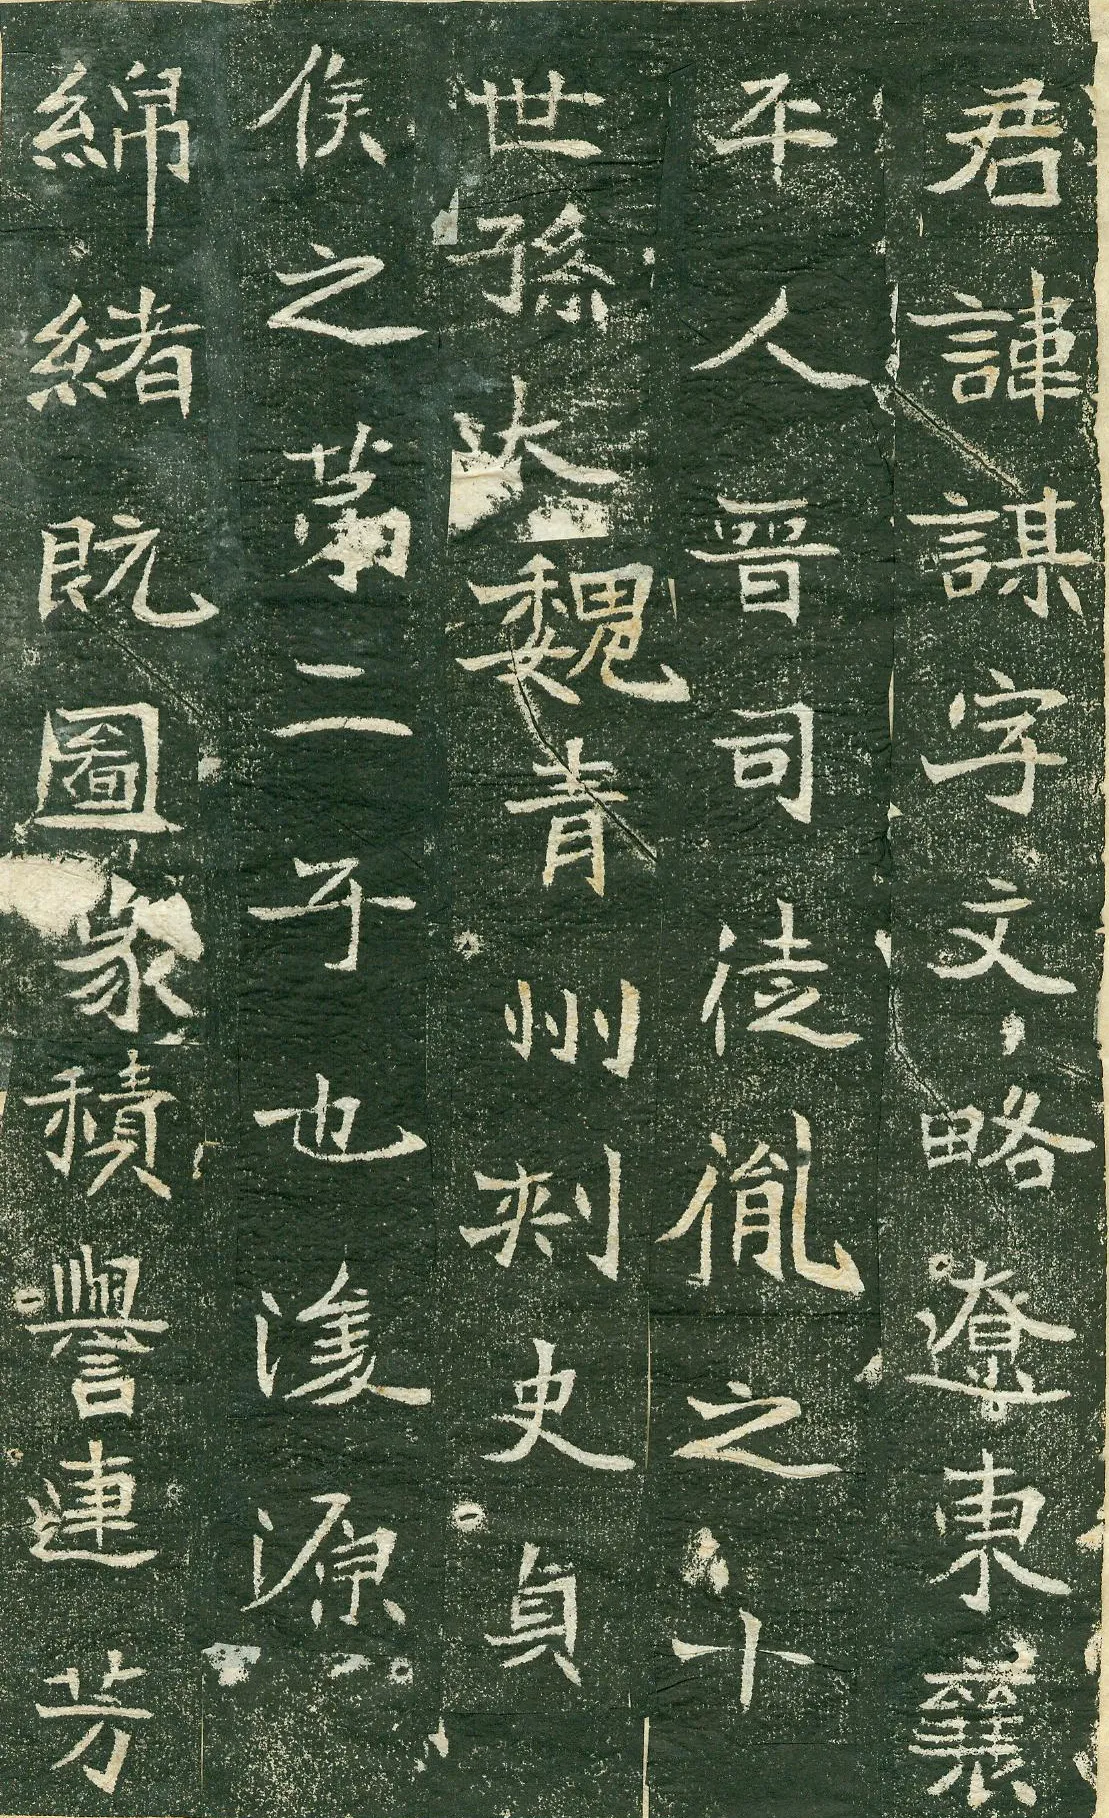 君諱謀字文略遼東襄
平人晉司徒胤之十
世孫大魏青州刺史貞
侯之第二子也濬源
綿緒既圖積譽連芳